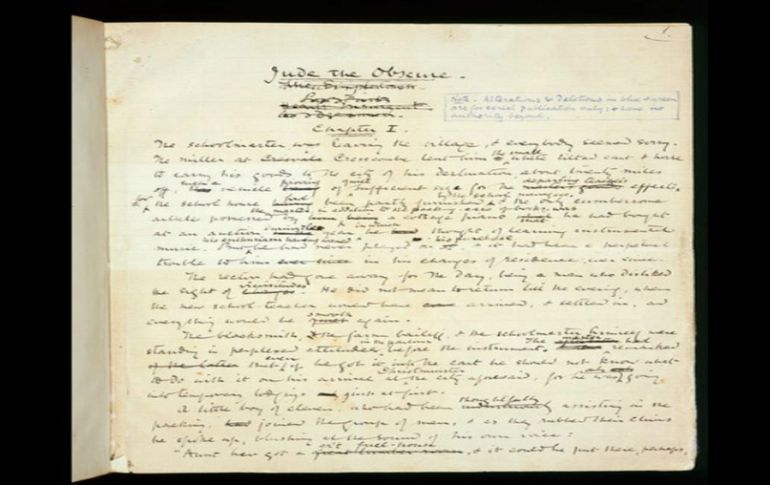 1.
Jude the Obscure.
The Simpletons
Hearts Insurgent
Chapter I.
Note. Alterations & deletions in blue & green
are for serial publication only: & have no
authority beyond.
The schoolmaster was leaving the village, & everybody seemed sorry.
the small
The miller at Cresscombe lent him white tilted cart & horse
to carry his goods to the city of his destination, about twenty miles
such a proving quite departing teacher's
off, vehicle of sufficient size for the effects.
by the school managers,
the school house had been partly furnished & the only cumbersome
the master, in addition to the packing case of books, was
article possessed by a cottage piano that he had bought
during the in which
at an auction year he thought of learning instrumental
his enthusiasm having waned
music. But he had never played it, & it had been a perpetual
trouble to him ever since in his changes of residence.
The rector had gone away for the day, being a man who disliked
the sight of changes. He did not mean to return till the evening, when
the new school-teacher would have arrived, & settled in, and
smooth
everything would be again.
The blacksmith, the farm bailiff, & the schoolmaster himself were
in the parlour master
standing in perplexed attitudes before the instrument. The had remarked
even
that if he got it into the cart he should not know what
Christminster
to do with it on his arrival at the city aforesaid, for he was going
only
into temporary lodgings just at first.
thoughtfully
A little boy of eleven, who had been assisting in the
packing, joined the group of men, & as they rubbed their chins
he spoke up, blushing at the sound of his own voice:
fuel-house
"Aunt have got a great & it could be put there, perhaps,